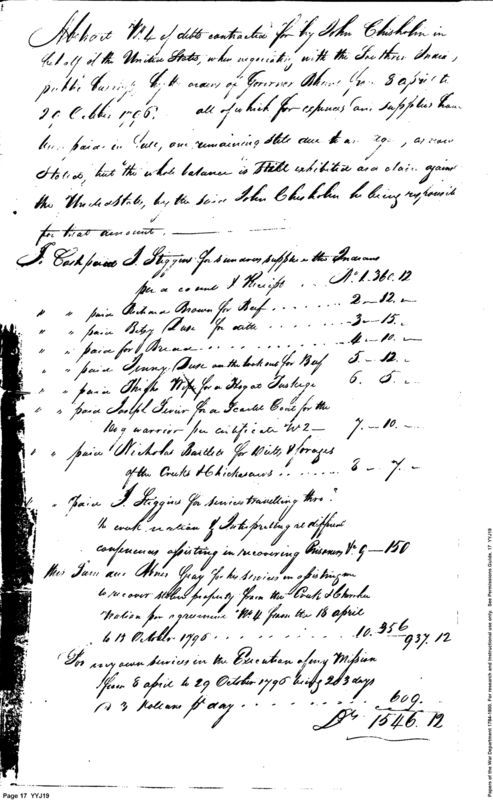 Abstract No 4 of debts contracted for by John Chisholm in
behalf of the United States, when negociating with the Southern Indians,
public business by the orders of Governor Blount from 8 april to
29 October 1796. all of which for expences and supplies have
been paid in one remaining still due to as now
stated, but the whole balance is still exhibited as a claim against
the United States, by the said John Chisholm he being responsible
for that amount.
To Cash paid J. Stiggins for sundries supplies the Indians
per account & Receipt . . No 1. 360. 12
" " paid Richard Brown for Beef . . . . . . 2 — 12. —
" " paid Betsy for ditto . . . . . . . 3 — 15. —
" " paid for Bread . . . . . . . . . . 4 — 10. —
" " paid Jenny on the for Beef 5 — 12. —
" " paid Wife for a Hog at Tuskega 6. 5. —
" " paid Joseph Sevier for a Scarlet Coat for the
warrior per certificate No 2 — 7. — 10. —
" " paid Nicholas Bartlett for & forages
of the Creeks & Chickasaws . . . . . . . 8 — 7. —
" " Paid J. Stiggins for services travelling thro'
the creek nation & Interpreting at different
conferences assisting in recovering Prisoners, No 9 — 150
This Sum due Gray for his services in assisting me
to recover stolen property from the Creek & Cherokee
Nation per agreement No 4 from the 18 april
to 13 October 1796 . . . . . . . . . 10. 356
937. 12
For my own services in the Execution of my Mission
from 8 april to 29 October 1796 being 203 days
@ 3 Dollars pr day . . . . . . . . 609.
Drs 1546. 12
Page 17 YYJ19
Papers of the War Department 1784-1800. For research and instructional use only. See Permissions Guide. 17 YYJ19